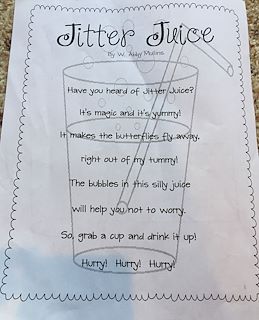 Jitter Juice
By W. Abby Mullins
Have you heard of Jitter Juice?
It's magic and it's yummy!
It makes the butterflies fly away,
right out of my tummy!
The bubbles in this silly juice
will help you not to worry.
So, grab a cup and drink it up!
Hurry! Hurry! Hurry!